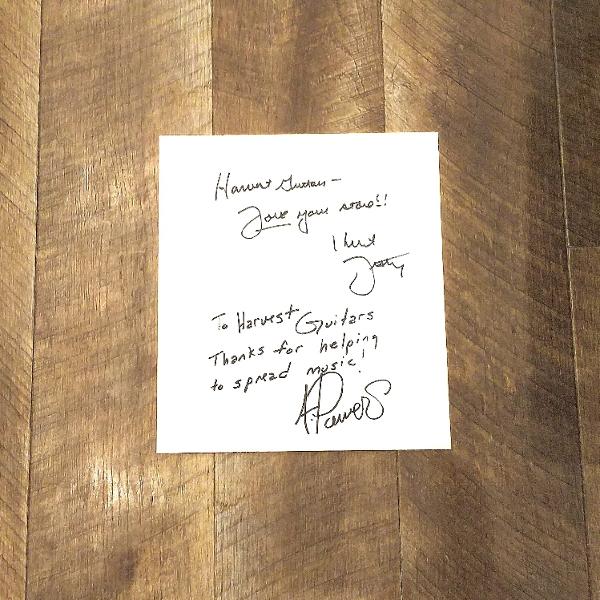 Harvest Guitars -
Love your store!!
To Harvest Guitars
Thanks for helping
to spread music!
A. Powers